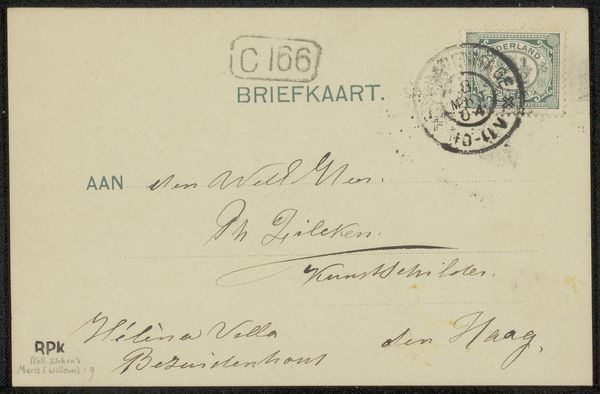 C 166
BRIEFKAART.
NEDERLAND
AAN den Well Heer
Ph Zilcken.
Kunstschilder.
Hélèna Villa
den Haag,
Bezuidenhout
RPK
(Coll. Zilcken)
Merit (Willem) · 9